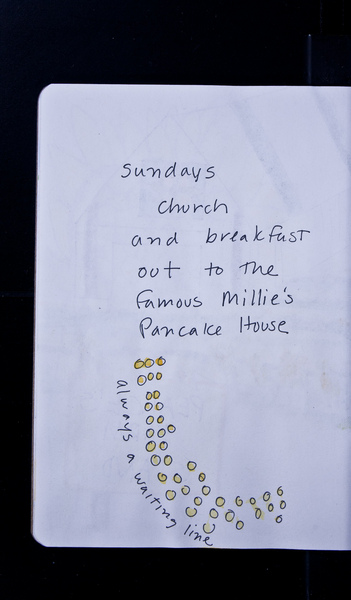 Sundays
church
and breakfast
out to the
Famous Millie's
Pancake House
always a waiting line